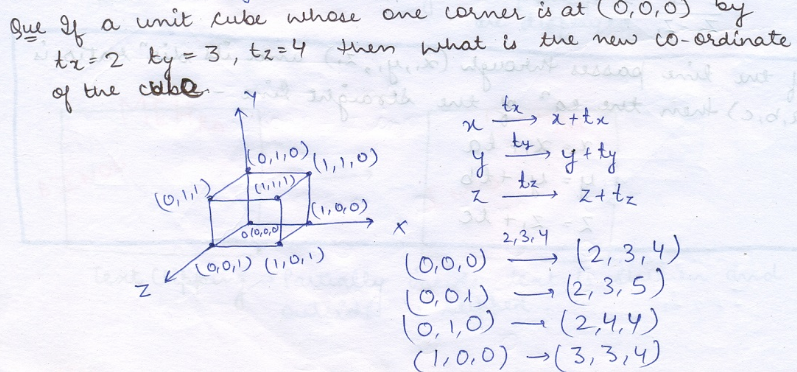 Que If a unit cube whose one corner is at (0,0,0) by
tx=2 ty=3, tz=4 then what is the new co-ordinate
of the cube.
Y
(0,1,0) (1,1,0)
(0,1,1) (1,1,1)
(1,0,0)
0(0,0,0) X
(0,0,1) (1,0,1)
Z
x tx→ x+tx
y ty→ y+ty
z tz→ z+tz
(0,0,0) 2,3,4→ (2,3,4)
(0,0,1) → (2,3,5)
(0,1,0) → (2,4,4)
(1,0,0) → (3,3,4)